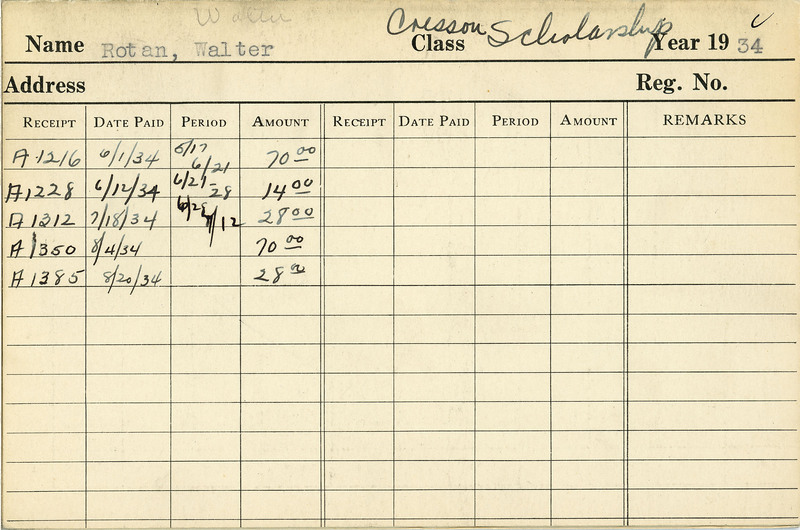 Walter
Name Rotan, Walter Class Cresson Scholarship Year 19 34
Address Reg. No.
RECEIPT DATE PAID PERIOD AMOUNT RECEIPT DATE PAID PERIOD AMOUNT REMARKS
A 1216 6/1/34 5/17 6/21 70 00
A1228 6/12/34 6/21- 28 14 00
A 1312 7/18/34 6/28 7/12 28 00
A 1350 8/4/34 70 00
A 1385 8/20/34 28 00